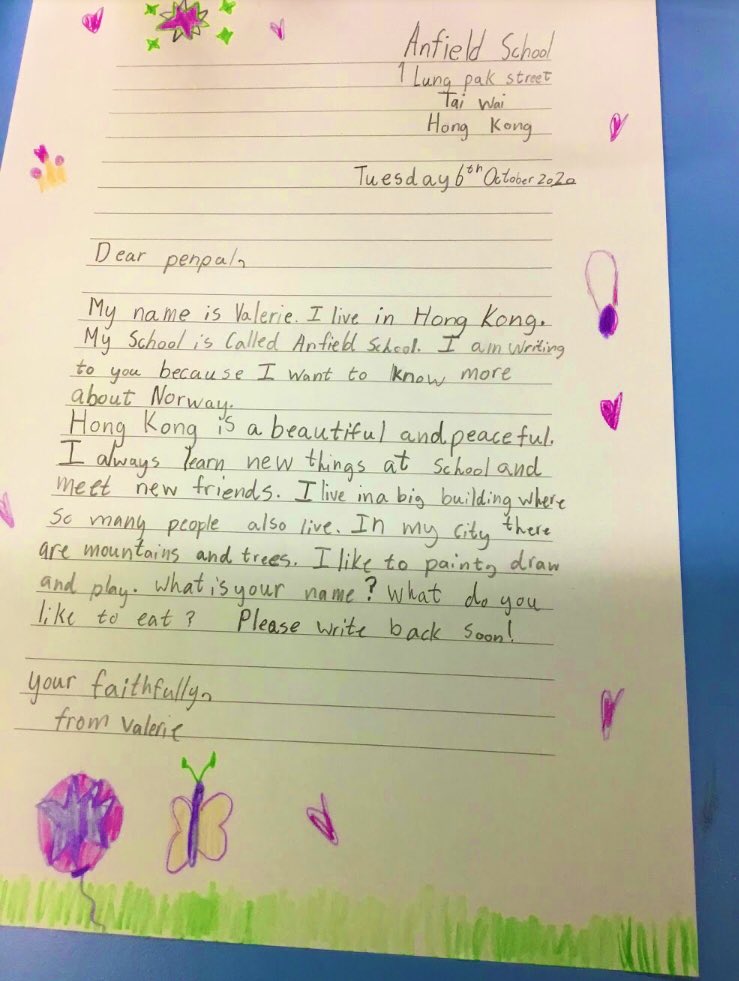 Anfield School
1 Lung pak street
Tai Wai
Hong Kong
Tuesday 6th October 2020
Dear penpal,
My name is Valerie. I live in Hong Kong.
My School is Called Anfield School. I am writing
to you because I want to know more
about Norway.
Hong Kong is a beautiful and peaceful.
I always learn new things at school and
meet new friends. I live in a big building where
so many people also live. In my city there
are mountains and trees. I like to paint, draw
and play. What is your name? What do you
like to eat? Please write back soon!
your faithfully,
from Valerie